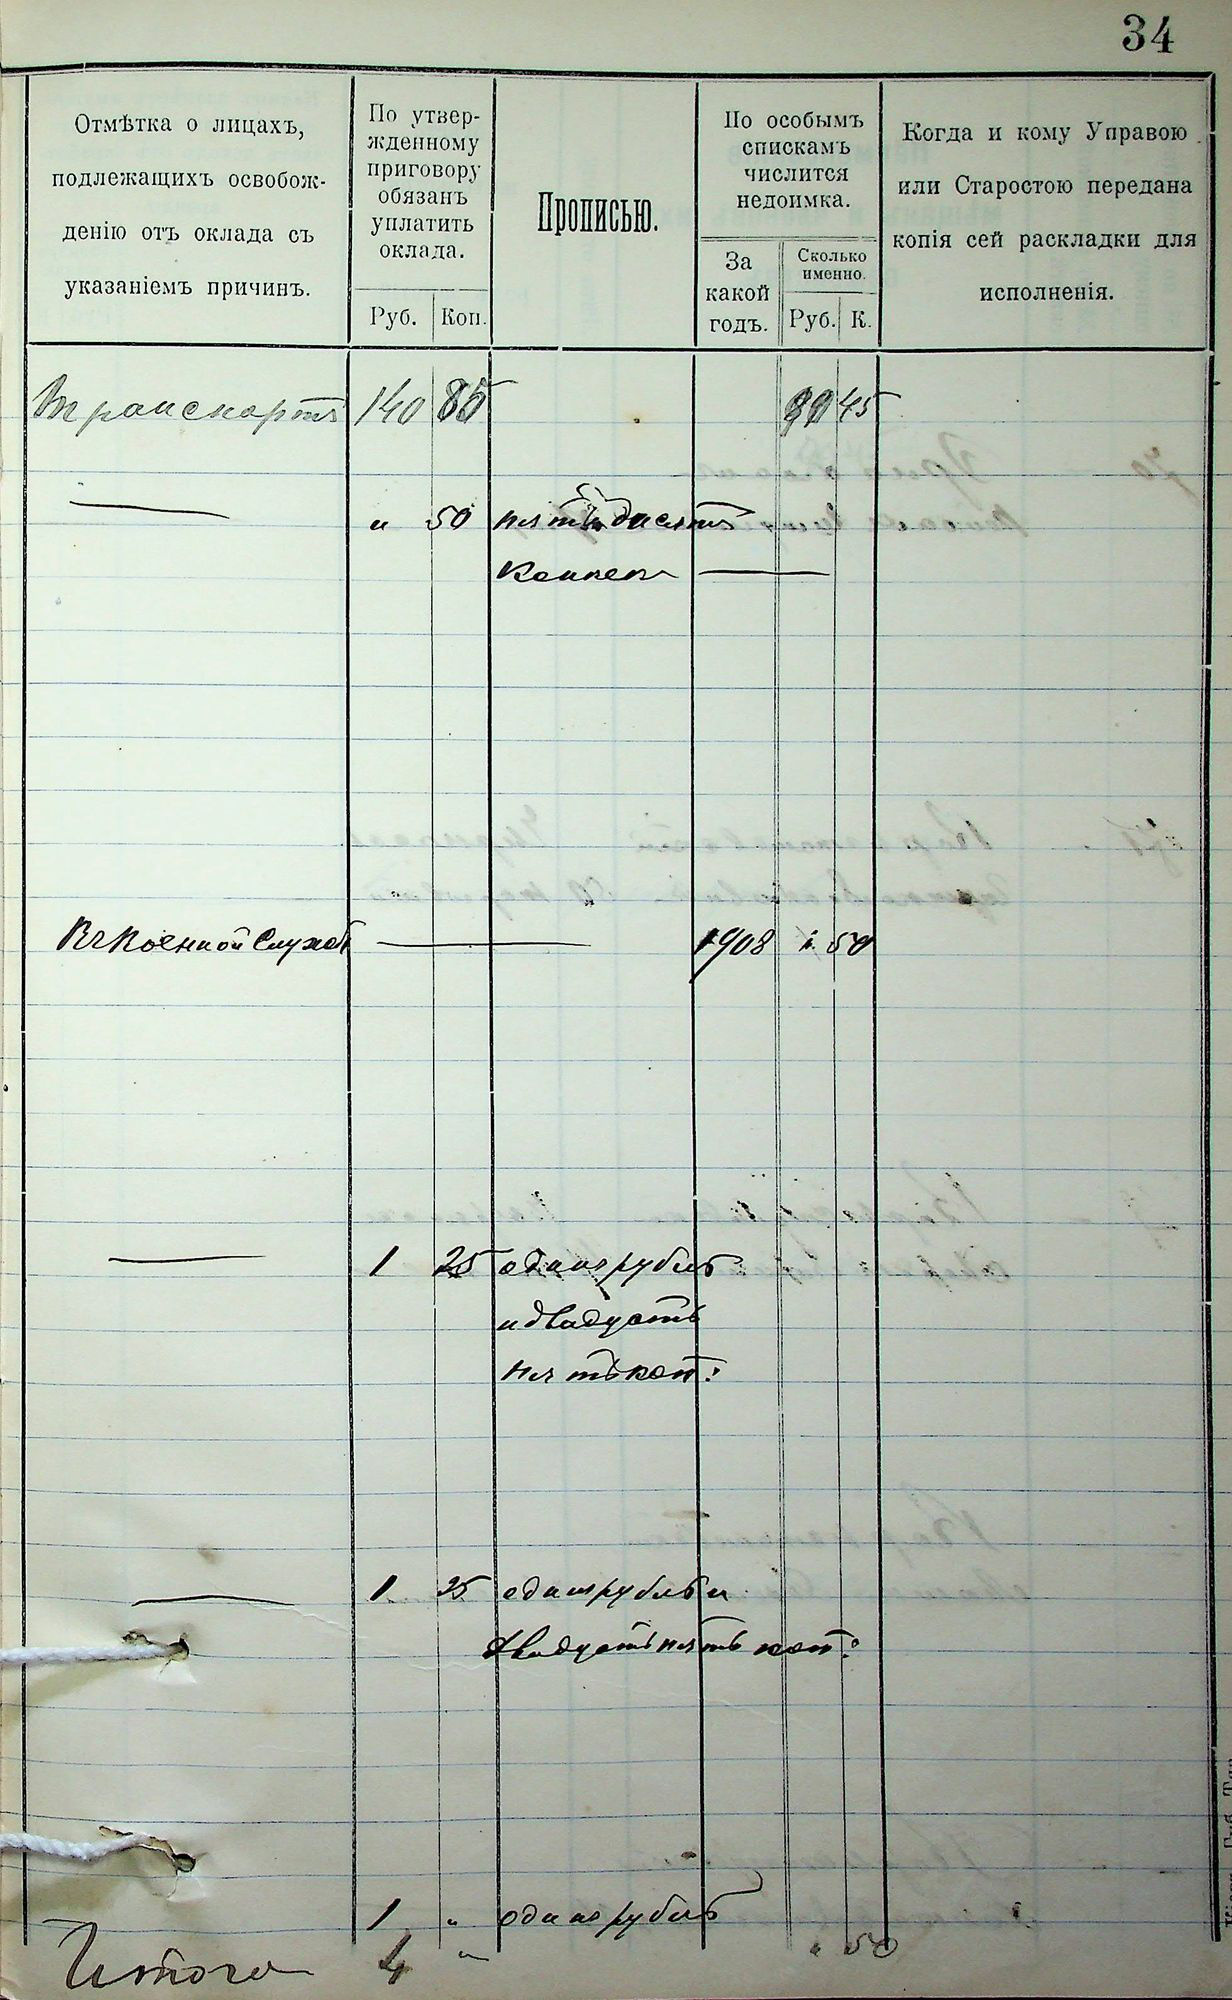 34
Отмѣтка о лицахъ,
подлежащихъ освобож-
денію отъ оклада съ
указаніемъ причинъ.
По утвер-
жденному
приговору
обязанъ
уплатить
оклада.
Руб. Коп.
Прописью.
По особымъ
спискамъ
числится
недоимка.
За
какой
годъ.
Сколько
именно.
Руб. К.
Когда и кому Управою
или Старостою передана
копія сей раскладки для
исполненія.
Транспортъ 140 85 45
" 50 пятьдесятъ
копеекъ
Въ военной службѣ 1908 " 50
1 25 одинъ рубль
и двадцать
пять коп:
1 25 одинъ рубль и
двадцать пять коп:
1 " одинъ рубль
Итого 4 " " 50